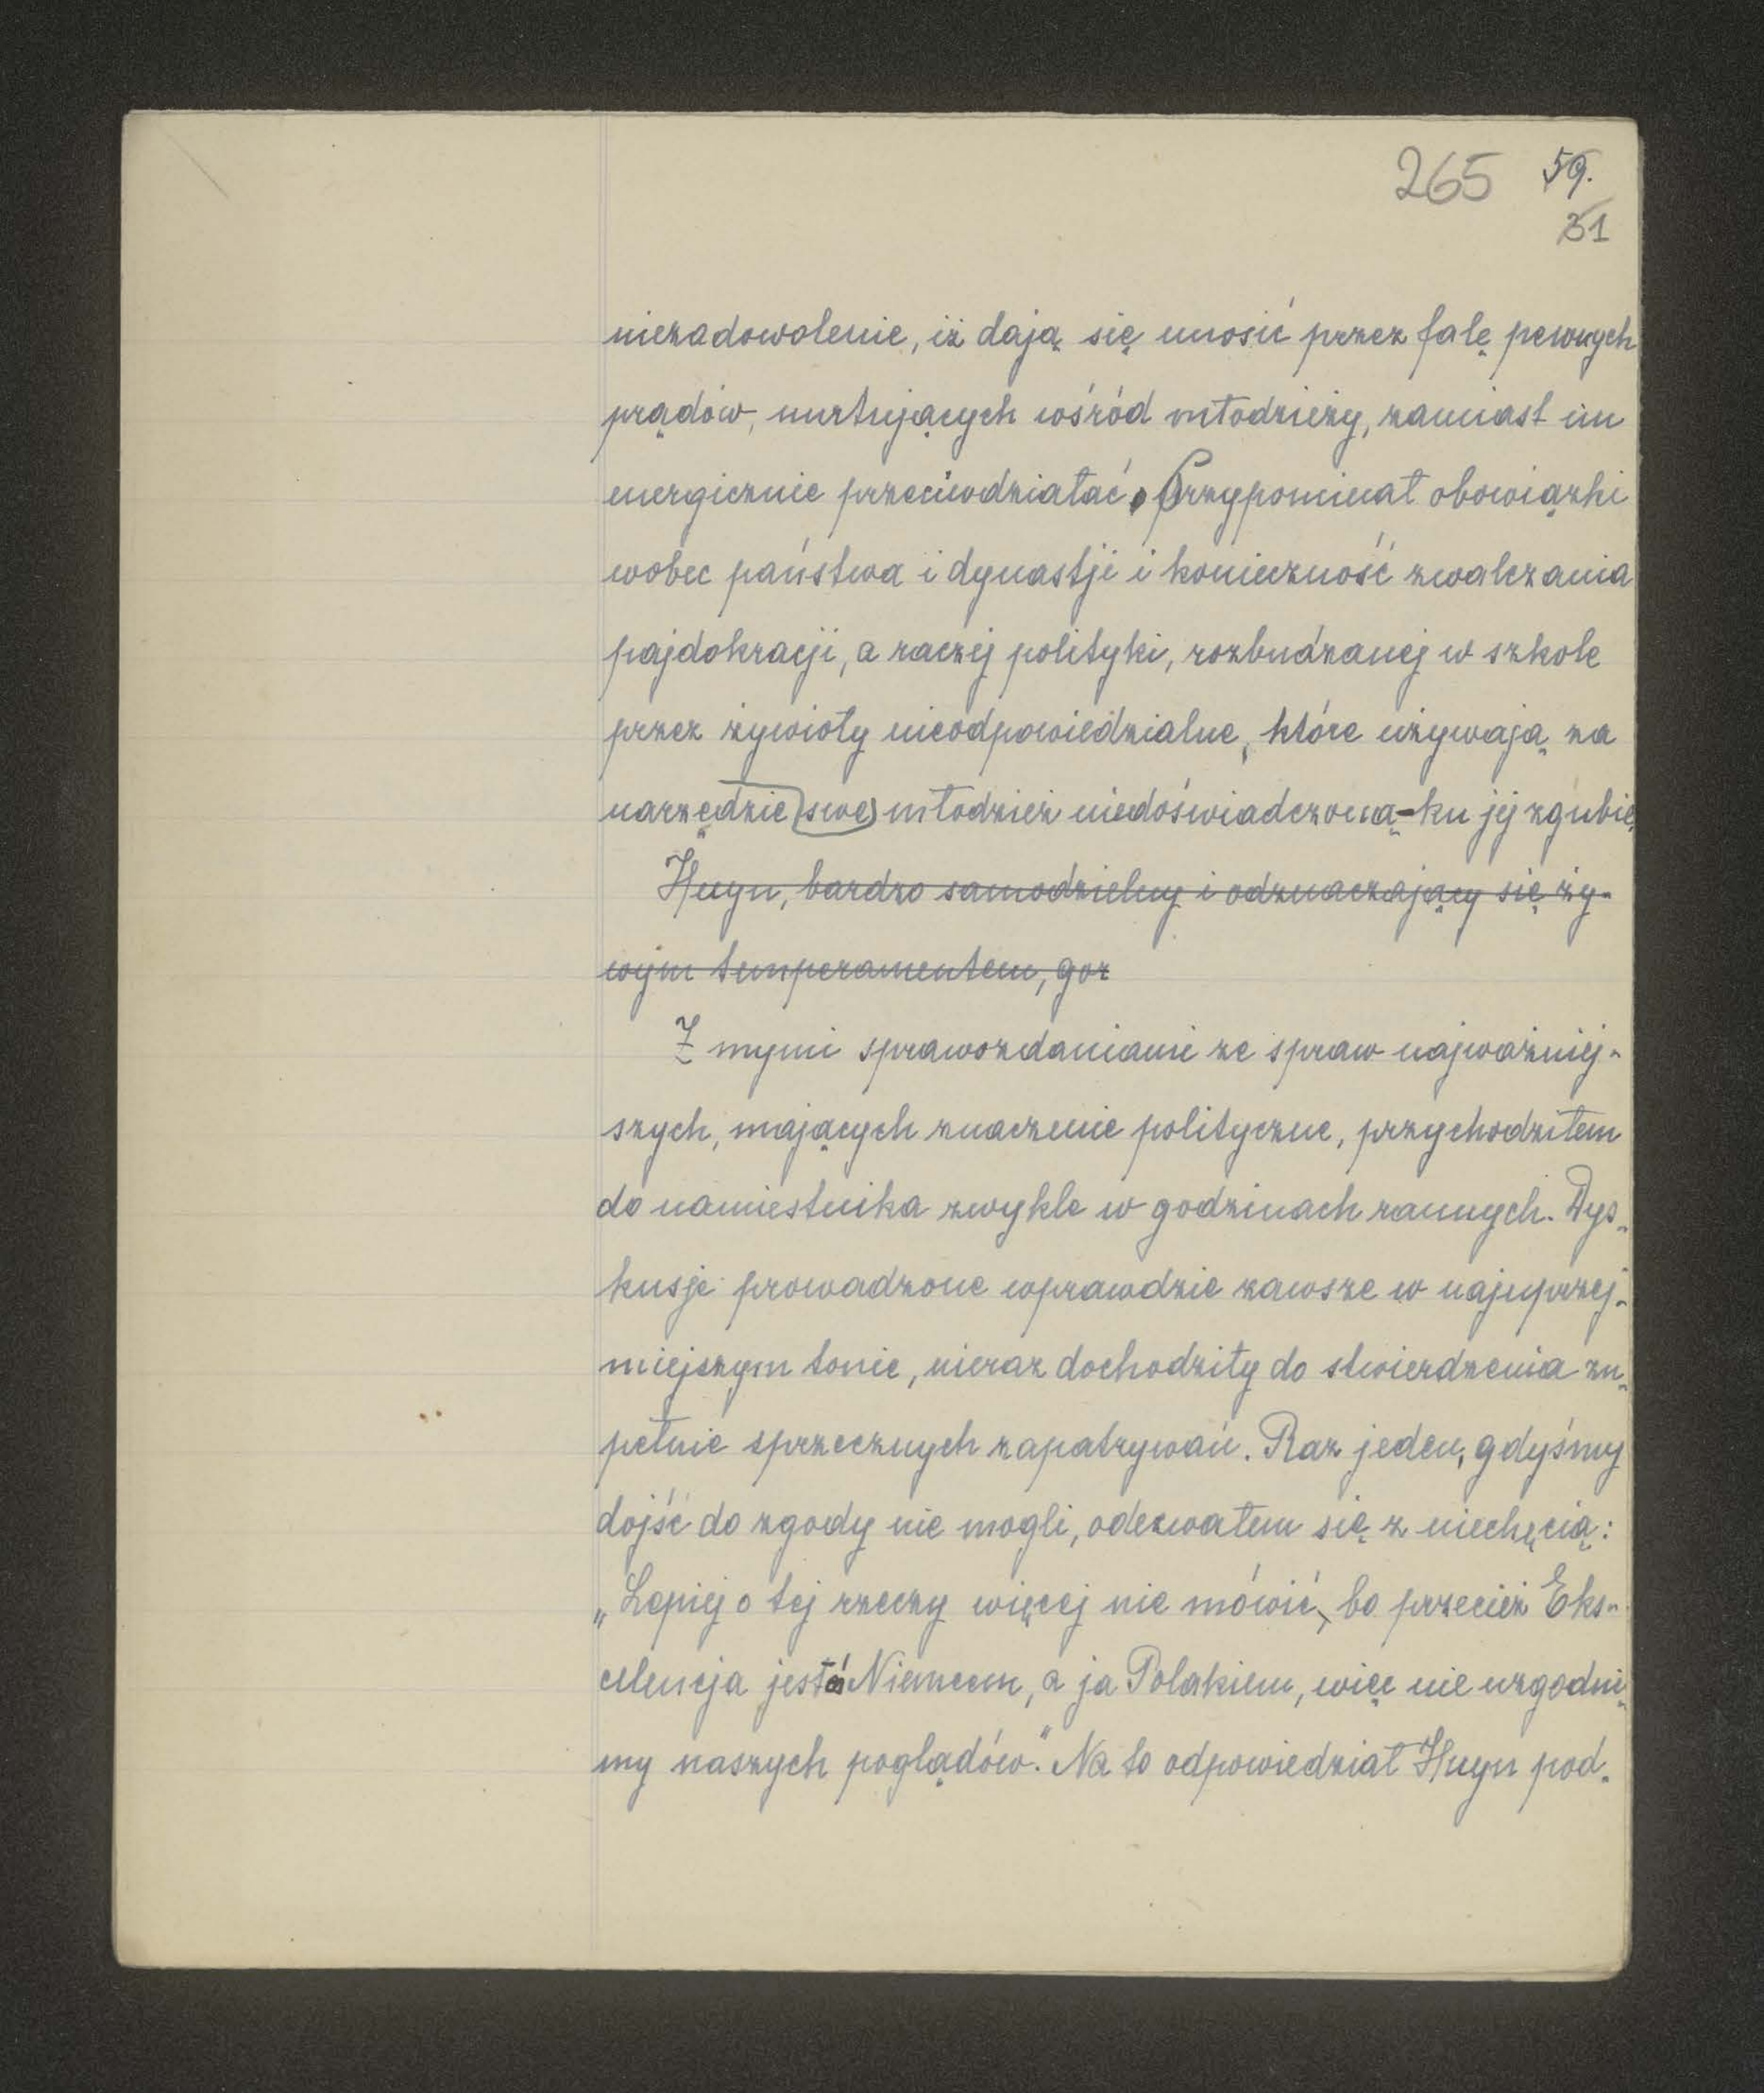 265 59.
31
niezadowolenie, iż dają się unosić przez falę pewnych
prądów, nurtujących wśród młodzieży, zamiast im
energicznie przeciwdziałać. Przypominał obowiązki
wobec państwa i dynastji i konieczność zwalczania
pajdokracji, a raczej polityki, rozbudzanej w szkole
przez żywioły nieodpowiedzialne, które używają za
narzędzie swe młodzież niedoświadczoną - ku jej zgubie
Huyn, bardzo samodzielny i odznaczający się ży-
wym temperamentem, gor
Z mymi sprawozdaniami ze spraw najważniej-
szych, mających znaczenie polityczne, przychodziłem
do namiestnika zwykle w godzinach rannych. Dys-
kusje prowadzone wprawdzie zawsze w najuprzej-
miejszym tonie, nieraz dochodziły do stwierdzenia zu-
pełnie sprzecznych zapatrywań. Raz jeden, gdyśmy
dojść do zgody nie mogli, odezwałem się z niechęcią:
„Lepiej o tej rzeczy więcej nie mówić, bo przecież Eks-
celencja jest Niemcem, a ja Polakiem, więc nie uzgodni-
my naszych poglądów." Na to odpowiedział Huyn pod-